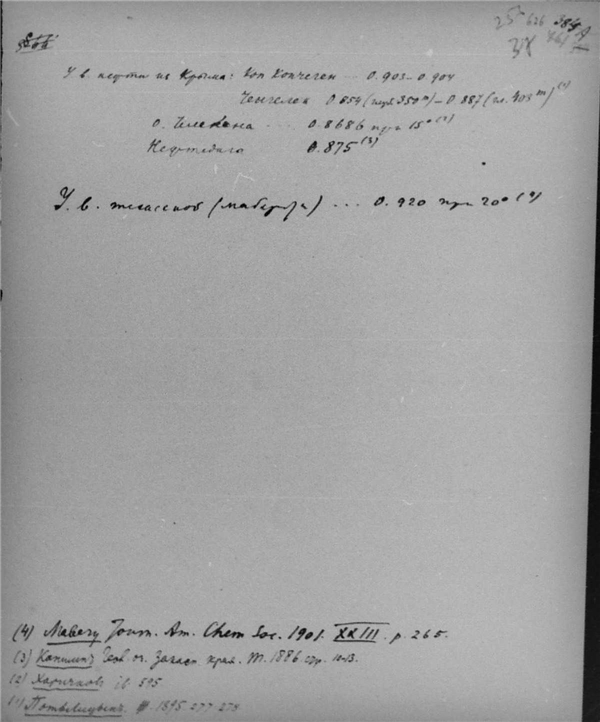 25 626 384
У в. нефти из Крыма: Коп Копчеген ... 0.903–0.904
Ченгелек 0.854 (глуб 350 m) – 0.887 (гл. 403 m) (1)
о. Челекена ... 0.8686 при 15° (2)
Нефтедаго 0.875 (3)
У. в. (Мабери) ... 0.920 при 20° (4)
(4) Mabery Journ. Am. Chem Soc. 1901. XXIII. p. 265.
(3) Коншинъ Геол. оч. Закасп. края. М. 1886 стр.
(2) Харичковъ ib 595
(1) Потылицынъ. 1895. 277–278